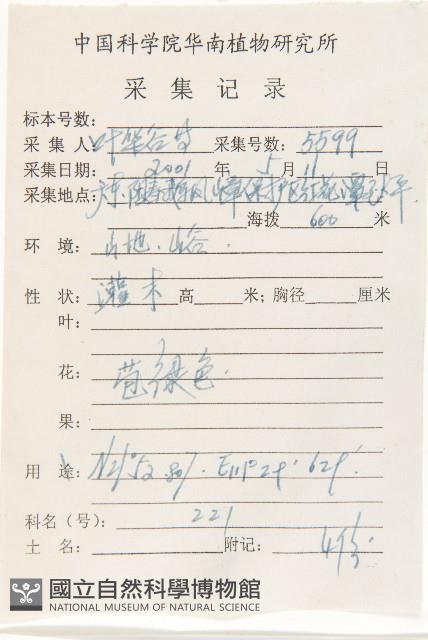 中国科学院华南植物研究所
采集记录
标本号数：
采集人：叶华谷等 采集号数：5599
采集日期：2001年5月11日
采集地点：
海拨 600 米
环境：山地·山谷·
性状：灌木 高 米；胸径 厘米
叶：
花：苞绿色·
果：
用途：
科名（号）：221
土名： 附记：4份·
國立自然科學博物館
NATIONAL MUSEUM OF NATURAL SCIENCE